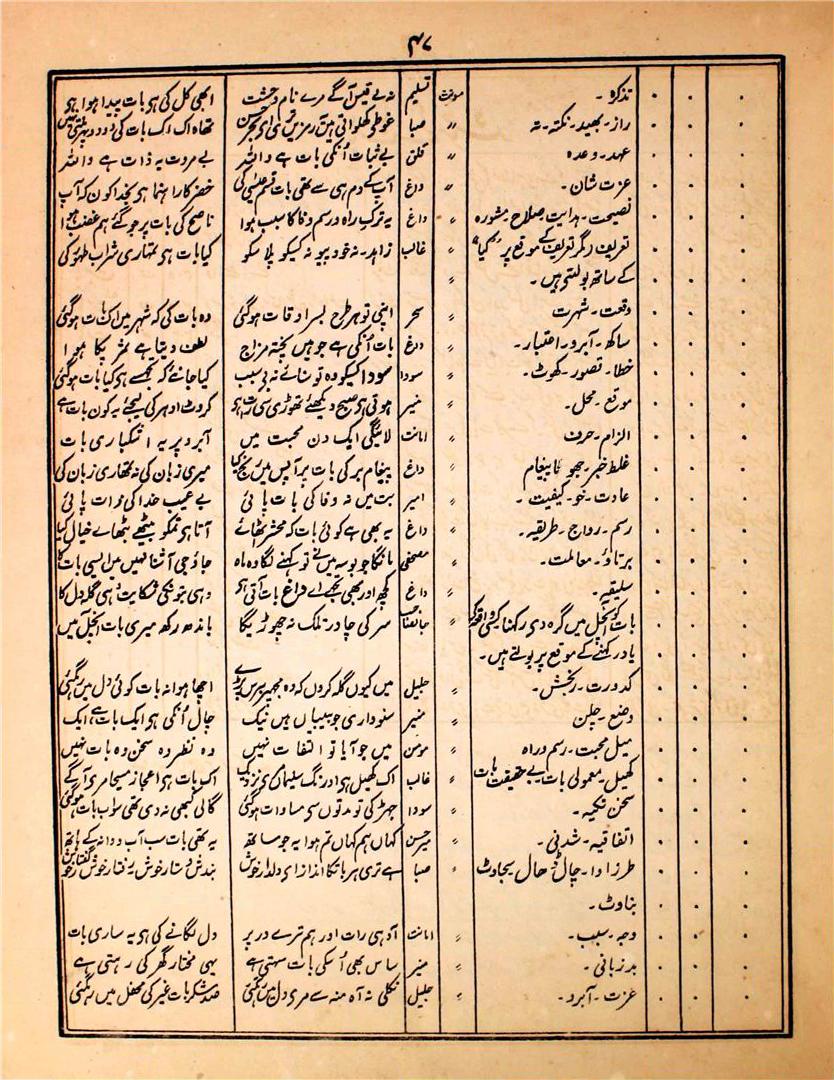 ۴۷
تذکرہ۔ مونث تسلیم نہ بے قیس آگے مرے نام وحشت ابھی کل کی ہو بات پیدا ہوا ہو
راز۔ بھید۔ نکتہ۔ تہ 〃 صبا غوطے کھلواتی ہیں تھاہ اک اک بات کی دو دو پہر
عہد۔ وعدہ 〃 قلق بے ثبات اُنکی بات ہے واللہ بے مروت یہ ذات ہے واللہ
عزت شان۔ 〃 داغ آپ کے دم ہی سے تھی بات قسم عیسٰی کی خضر کا راہنما ہو بخدا کون کہ آپ
نصیحت۔ ہدایت صلاح۔ مشورہ 〃 داغ یہ ترک راہ و رسم وفا کا سبب ہوا ناصح کی بات پر جو گئے ہم غضب ہوا
تعریف (مگر تعریف کے موقع پر "کیا" 〃 غالب زاہد۔ نہ خود پیو نہ کسیکو پلا سکو کیا بات ہو تمہاری شراب طہور کی
کے ساتھ بولتے ہیں۔ 〃
وقعت۔ شہرت 〃 سحر اپنی تو ہر طرح بسر اوقات ہوگئی وہ بات کی کہ شہر میں اک بات ہوگئی
ساکھ۔ آبرو۔ اعتبار۔ 〃 داغ بات اُنکی ہے جو ہیں پختہ مزاج لطف دیتا ہے ثمر پکا ہوا
خطا۔ قصور۔ کھوٹ۔ 〃 سودا سودا کسیکو وہ تو ستائے نہ بے سبب کیا جانئے کہ تجھسے ہی کیا بات ہوگئی
موقع۔ محل۔ 〃 منیر ہوتی ہو صبح دیکھئے تھوڑی سی رات ہو کروٹ ادھر کی لیجئے یہ کون بات ہے
الزام۔ حرف 〃 امانت لائیگی ایک دن محبت میں آبرو پر یہ اشکباری بات
غلط خبر۔ جھوٹا پیغام 〃 داغ پیغام بر کی بات پر آپس میں رنج کیا میری زبان کی نہ تمھاری زبان کی
عادت۔ خو۔ کیفیت۔ 〃 امیر بت میں نہ وفا کی بات پائی بے عیب خدا کی ذات پائی
رسم۔ رواج۔ طریقہ۔ 〃 داغ یہ بھی ہے کوئی بات کہ محشر اٹھائے آتا ہو تمکو بیٹھے بٹھاے خیال کیا
برتاؤ۔ معاملت۔ 〃 مصحفی مانگا جو بوسہ میں نے تو کہنے لگا وہ ماہ جاؤ جی آشنا نہیں مرا ایسی بات کا
سلیقہ۔ 〃 داغ کچھ اور بھی تجھے اے داغ بات آتی ہو وہی بتوں کی شکایت وہی گلہ دل کا
بات کو آنچل میں گرہ دی رکھنا 〃 جانصاحب سر کی چادر تلک نہ چھوڑیگا باندھ رکھ میری بات آنچل میں
یاد رکھنے کے موقع پر بولتے ہیں۔
کدورت۔ رنجش۔ 〃 جلیل میں کیوں گلہ کروں کہ وہ مجھپر برس پڑے اچھا ہوا نہ بات کوئی دل میں رہگئی
وضع۔ چلن 〃 منیر سنو داری جو بیبیاں ہیں نیک چال اُنکی ہو ایک بات ہے ایک
میل محبت۔ رسم و راہ 〃 مومن میں جو آیا تو التفات نہیں وہ نظر وہ سخن وہ بات نہیں
کھیل۔ معمولی بات بے حقیقت بات 〃 غالب اک کھیل ہو اورنگ سلیماں مری نزدیک اک بات ہو اعجاز مسیحا مری آگے
سخن تکیہ۔ 〃 سودا جھڑکی تو مدتوں سی مساوات ہوگئی گالی کبھی نہ دی تھی سو اب بات ہوگئی
اتفاقیہ۔ شدنی۔ 〃 میرحسن کہاں ہم کہاں تم ہوا یہ جو ساتھ یہ تھی بات سب آب و دانہ کے ہاتھ
طرز ادا۔ چال ڈھال سجاوٹ 〃 صبا ہے تری ہر بات کا انداز ای دلدار خوش بندش دستار خوش رفتار خوش
بناوٹ۔
وجہ۔ سبب۔ 〃 امانت آدہی رات اور ہم ترے در پر دل لگانے کی ہو یہ ساری بات
بدزبانی۔ 〃 منیر ساس بھی اُسکی بات سہتی ہے یہی مختار گھر کی رہتی ہے
عزت۔ آبرو۔ 〃 جلیل نکلی نہ آہ منہ سے مری دل میں رہگئی صد شکر بات غیر کی محفل میں رہگئی